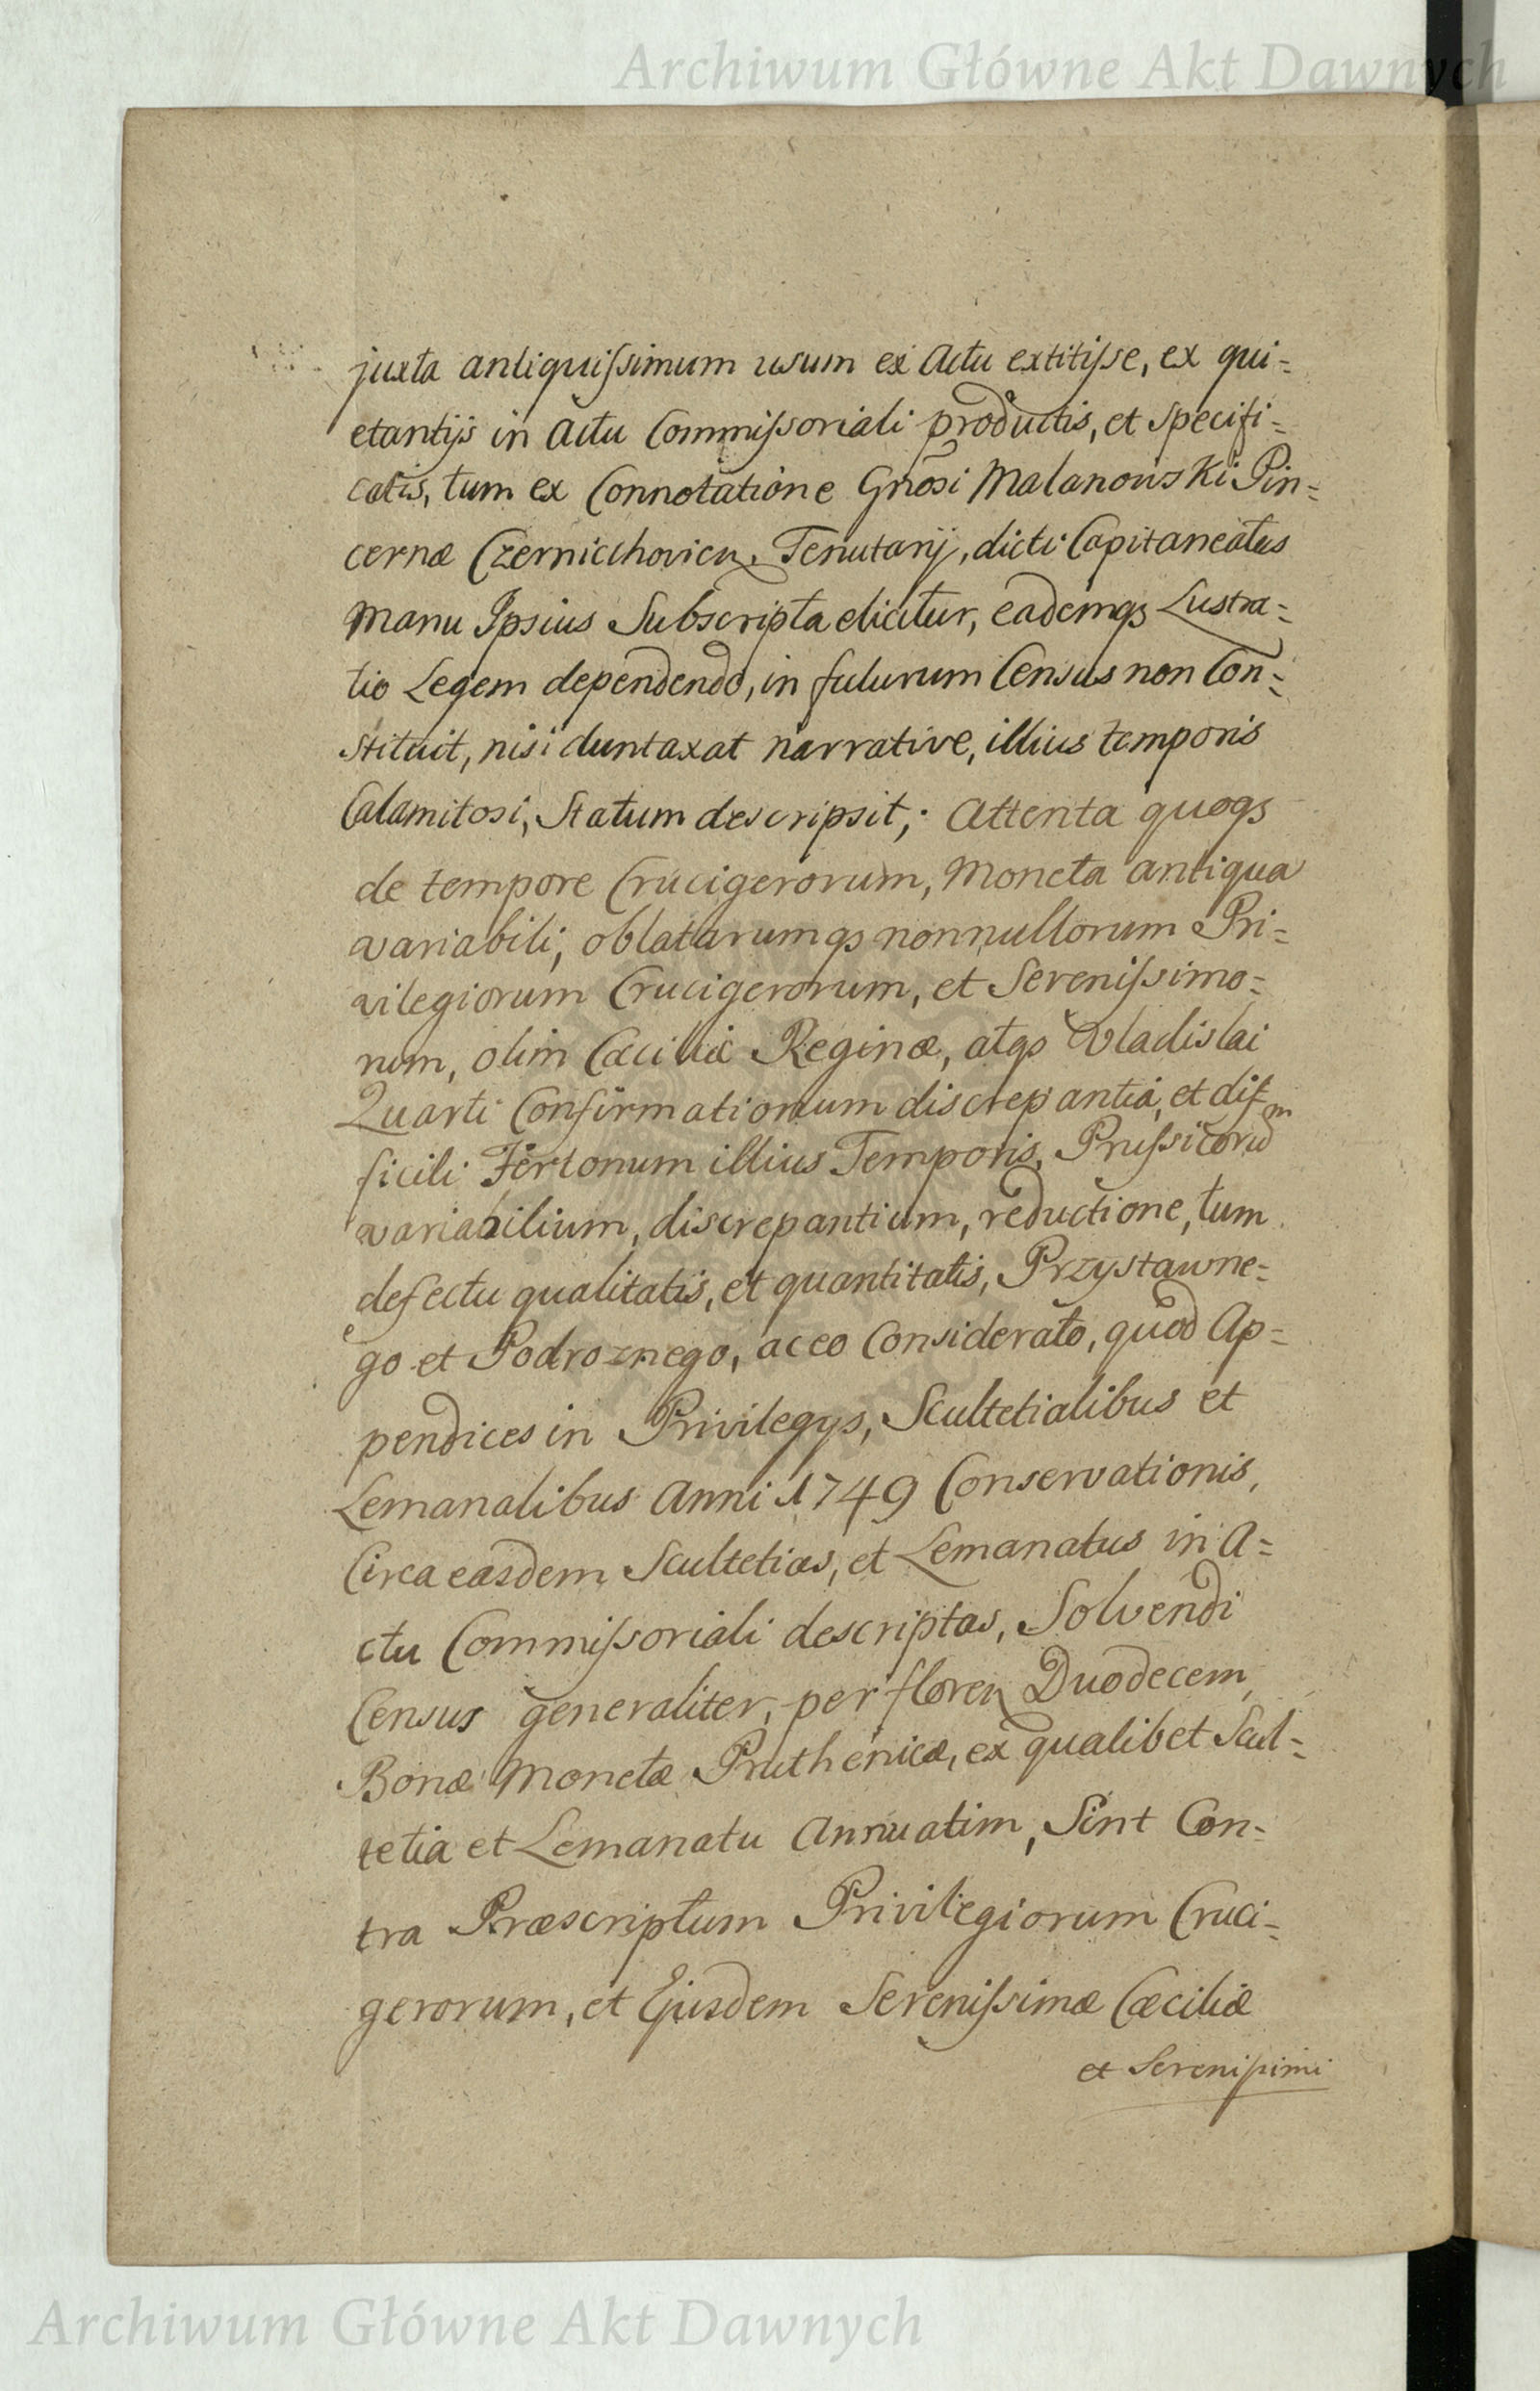 Archiwum Główne Akt Dawnych
juxta antiquissimum usum ex Actu extitisse, ex qui=
etantijs in Actu Commissoriali productis, et specifi=
catis, tum ex Connotatione Gnosi Malanowski Pin=
cernæ Czerniechovien. Tenutarij, dicti Capitaneatus
Manu Ipsius Subscripta elicitur, eademqs Lustra=
tio Legem dependendo, in futurum Census non Con=
stituit, nisi duntaxat narrative, illius temporis
Calamitosi, Statum descripsit; Attenta quoqs
de tempore Crucigerorum, Moneta antiqua
variabili, oblatarumqs nonnullorum Pri=
vilegiorum Crucigerorum, et Serenissimo=
rum, olim Cæciliæ Reginæ, atqs Vladislai
Quarti Confirmationum discrepantia, et dif=
ficili Fertonum illius Temporis, Prussicorum
variabilium, discrepantium, reductione, tum
defectu qualitatis, et quantitatis, Przystawne=
go et Podroznego, ac eo Considerato, quod Ap=
pendices in Privilegys, Scultetialibus et
Lemanalibus Anni 1749 Conservationis,
Circa easdem Scultetias, et Lemanatus in A=
ctu Commissoriali descriptas, Solvendi
Census generaliter, per floren Duodecem,
Bonæ Monetæ Pruthenicæ, ex qualibet Scul=
tetia et Lemanatu Annuatim, Sint Con=
tra Præscriptum Privilegiorum Cruci=
gerorum, et Ejusdem Serenissimæ Cæciliæ
et Serenissimi
Archiwum Główne Akt Dawnych